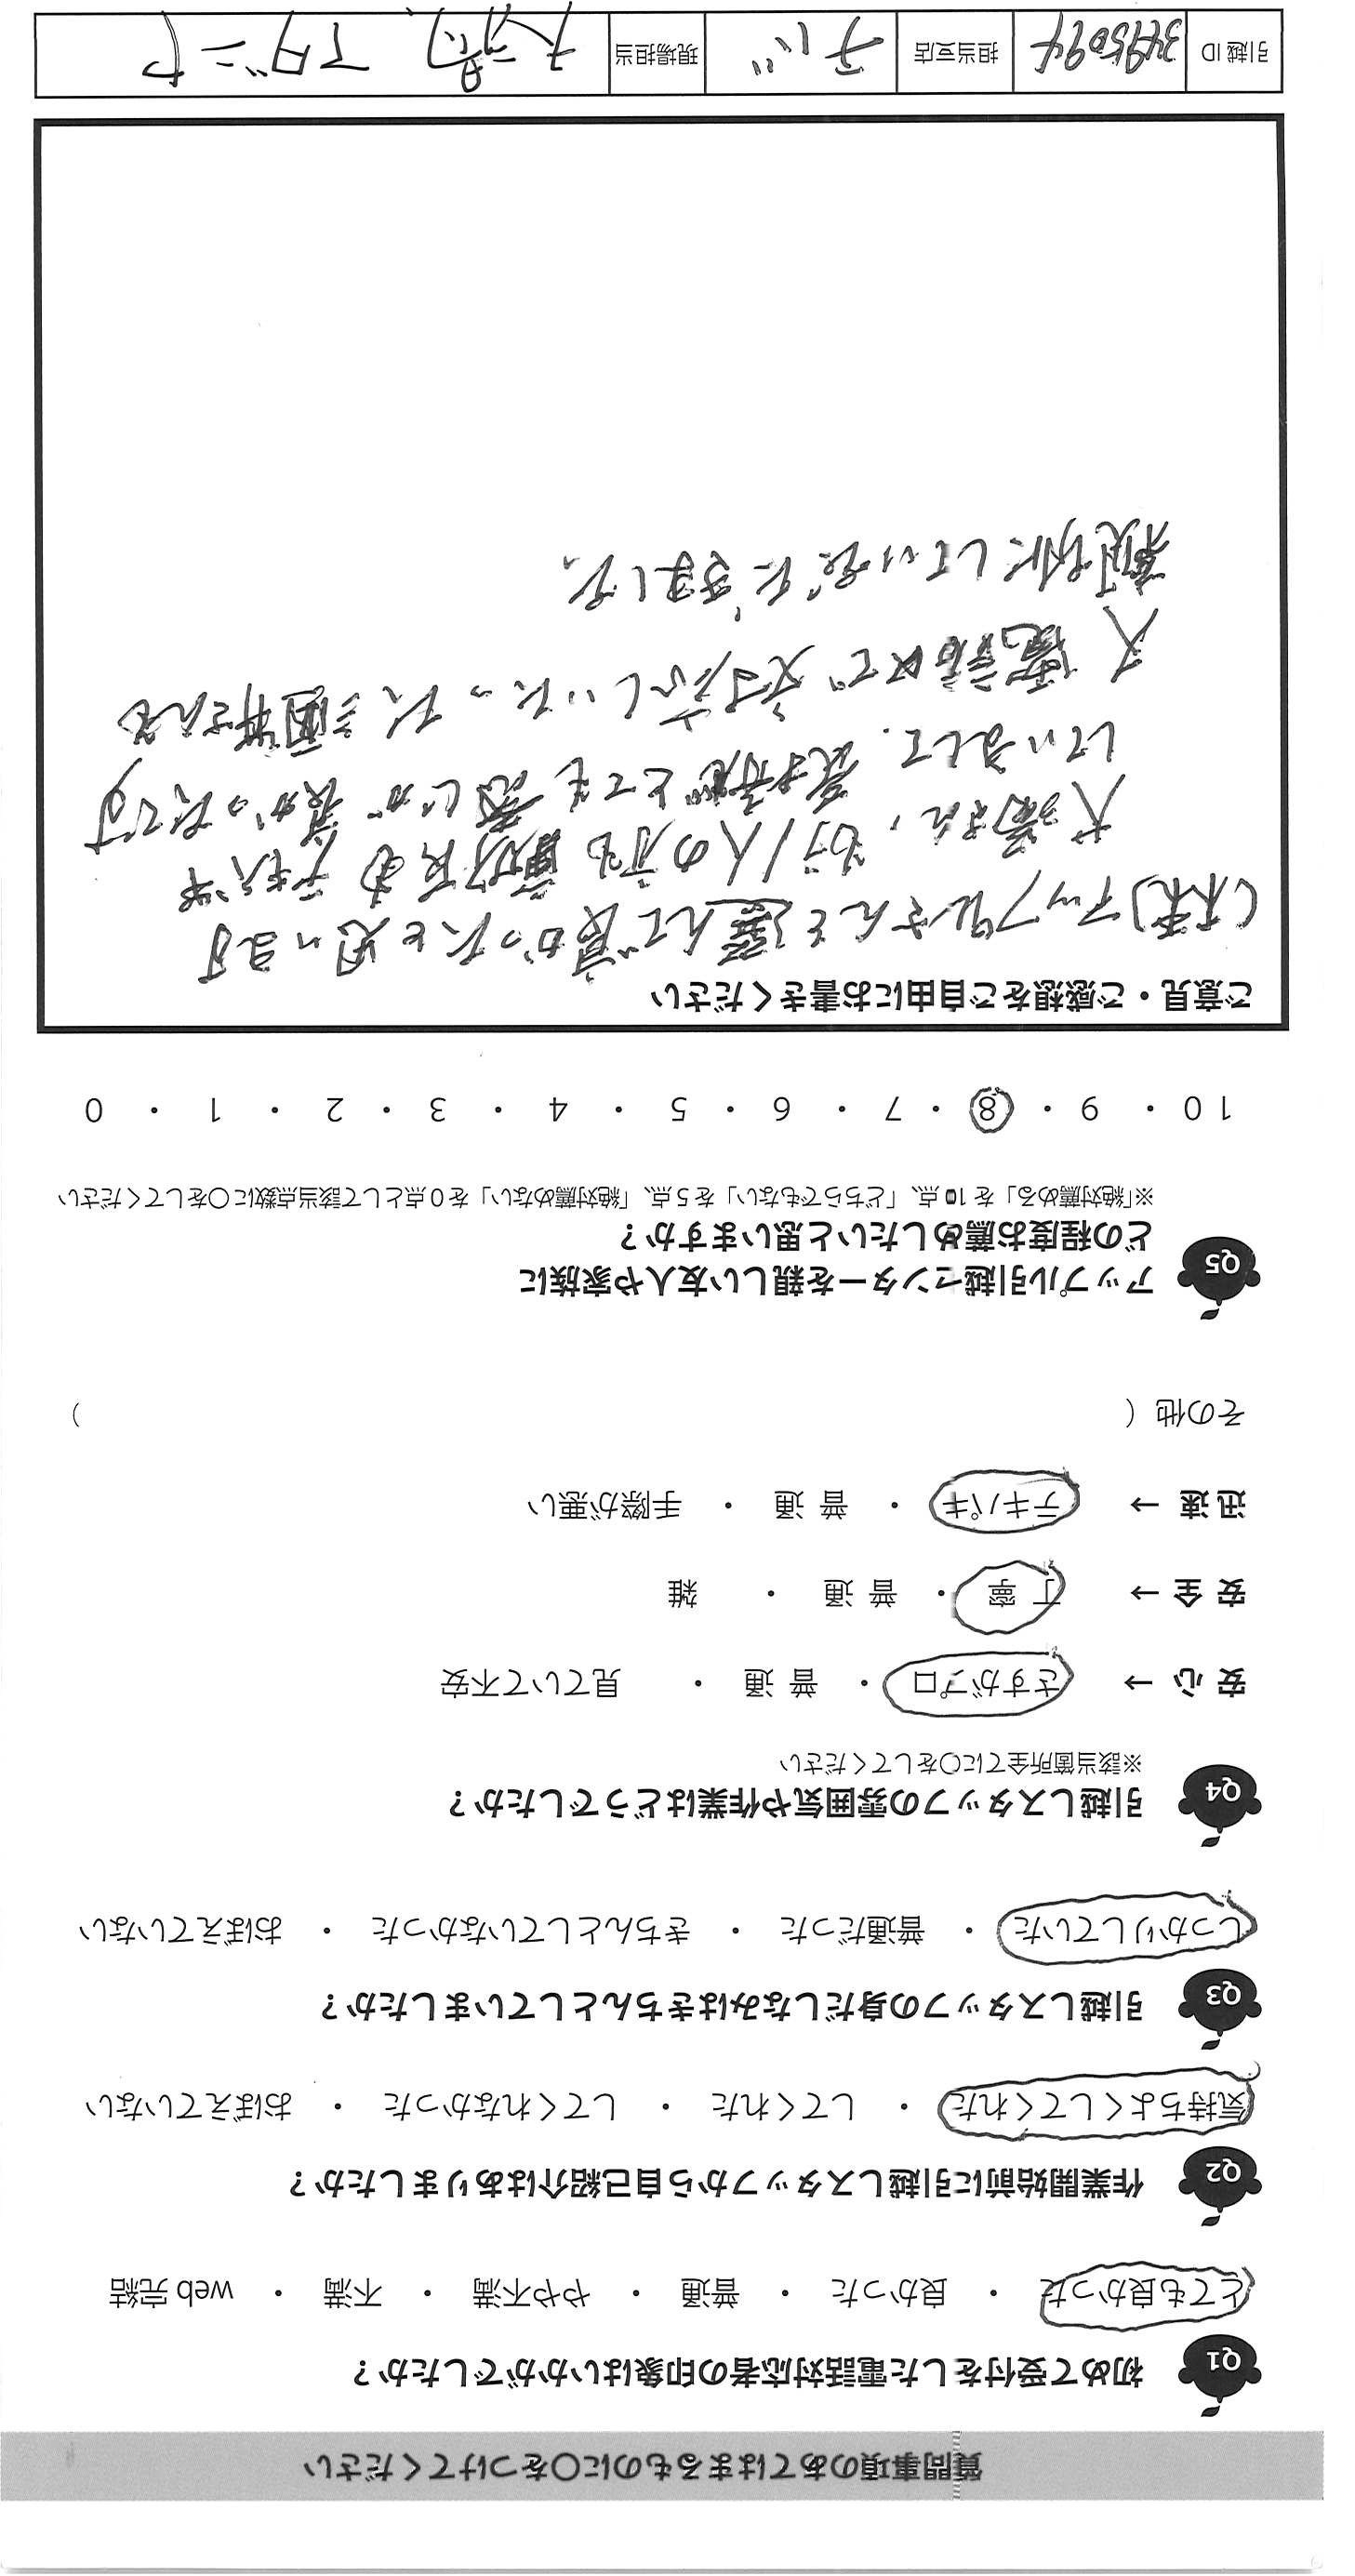 質問事項のあてはまるものに〇をつけてください
Q1 初めて受付をした電話対応者の印象はいかがでしたか？
とても良かった ・ 良かった ・ 普通 ・ やや不満 ・ 不満 ・ web 完結
Q2 作業開始前に引越しスタッフから自己紹介はありましたか？
気持ちよくしてくれた ・ してくれた ・ してくれなかった ・ おぼえていない
Q3 引越しスタッフの身だしなみはきちんとしていましたか？
しっかりしていた ・ 普通だった ・ きちんとしていなかった ・ おぼえていない
Q4 引越しスタッフの雰囲気や作業はどうでしたか？
※該当箇所全てに〇をしてください
安 心 → さすがプロ ・ 普 通 ・ 見ていて不安
安 全 → 丁 寧 ・ 普 通 ・ 雑
迅 速 → テキパキ ・ 普 通 ・ 手際が悪い
その他（ ）
Q5 アップル引越センターを親しい友人や家族に
どの程度お薦めしたいと思いますか？
※「絶対薦める」を 10 点、「どちらでもない」を 5 点、「絶対薦めない」を 0 点として該当点数に〇をしてください
10 ・ 9 ・ 8 ・ 7 ・ 6 ・ 5 ・ 4 ・ 3 ・ 2 ・ 1 ・ 0
ご意見・ご感想をご自由にお書きください
アップルさんを選んで良かったと思います
さん、もう1人の方も
していまして、とても感じが良かったです
又電話口で さんを
親切にしていただきました。
引越 ID 3495094 担当支店 チバ 現場担当